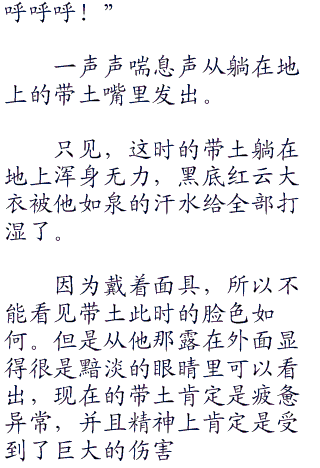 呼呼呼！”
一声声喘息声从躺在地
上的带土嘴里发出。
只见，这时的带土躺在
地上浑身无力，黑底红云大
衣被他如泉的汗水给全部打
湿了。
因为戴着面具，所以不
能看见带土此时的脸色如
何。但是从他那露在外面显
得很是黯淡的眼睛里可以看
出，现在的带土肯定是疲惫
异常，并且精神上肯定是受
到了巨大的伤害